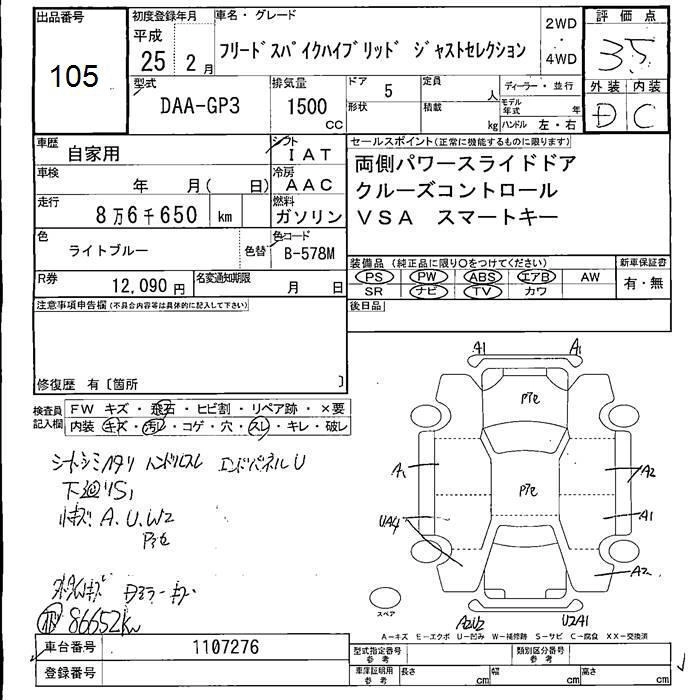 出品番号 105
初度登録年月 平成 25年 2月
車名・グレード フリードスパイクハイブリッド ジャストセレクション
2WD・4WD
評価点 3.5
型式 DAA-GP3
排気量 1500 CC
ドア 5
形状
定員 人
積載 kg
ディーラー・並行
モデル年式 年
ハンドル 左・右
外装 D
内装 C
車歴 自家用
シフト IAT
車検 年 月( 日)
冷房 AAC
走行 8万6千650 km
燃料 ガソリン
色 ライトブルー
色替
色コード B-578M
R券 12,090円
名変通知期限 月 日
セールスポイント(正常に機能するものに限ります)
両側パワースライドドア
クルーズコントロール
VSA スマートキー
装備品(純正品に限り〇をつけてください)
PS PW ABS エアB AW
SR ナビ TV カワ
新車保証書 有・無
注意事項申告欄(不具合内容等は具体的に記入して下さい)
後日品
修復歴 有〔箇所 〕
検査員記入欄
FW キズ・飛石・ヒビ割・リペア跡・×要
内装 キズ・汚レ・コゲ・穴・スレ・キレ・破レ
シートシミハタリ ハンドルスレ エンドパネルU
下廻りS1
A.U.W2
Pte
86652km
A1 A1
Pte
A1 A2
Pte
UA4 A1
A2
A2U2 U2A1
スペア
A-キズ E-エクボ U-凹み W-補修跡 S-サビ C-腐食 XX-交換済
車台番号 1107276
登録番号
型式指定番号 参考
類別区分番号 参考
車庫証明用 参考 長さ cm 幅 cm 高さ cm